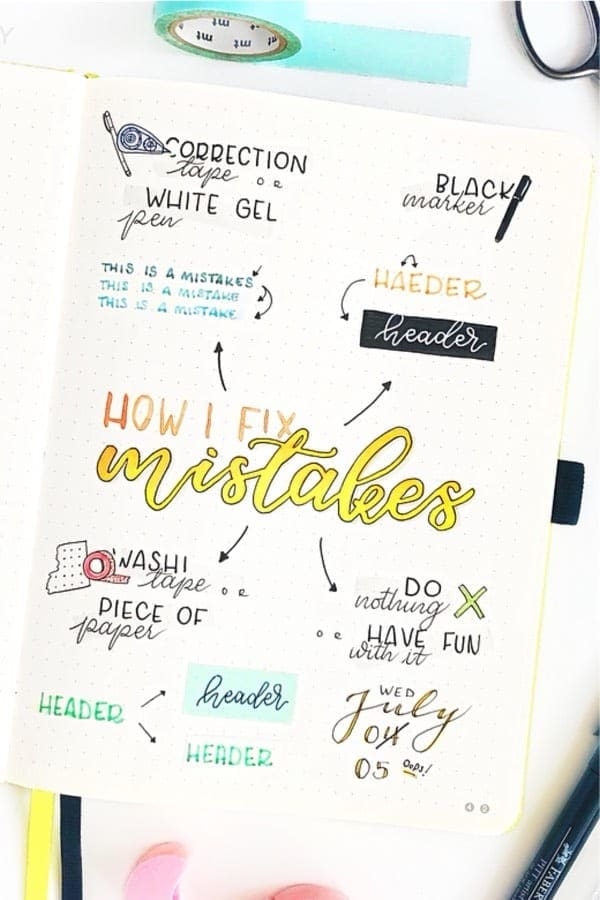 mt mt mt
Y
CORRECTION
tape OR
WHITE GEL
pen
BLACK
marker
THIS IS A MISTAKES
THIS IS A MISTAKE
THIS IS A MISTAKE
HAEDER
header
HOW I FIX
mistakes
WASHI
tape OR
PIECE OF
paper
DO
nothing
OR HAVE FUN
with it
HEADER
header
HEADER
WED
July
04
05 Oops!
4 2
FABER
PITT artist